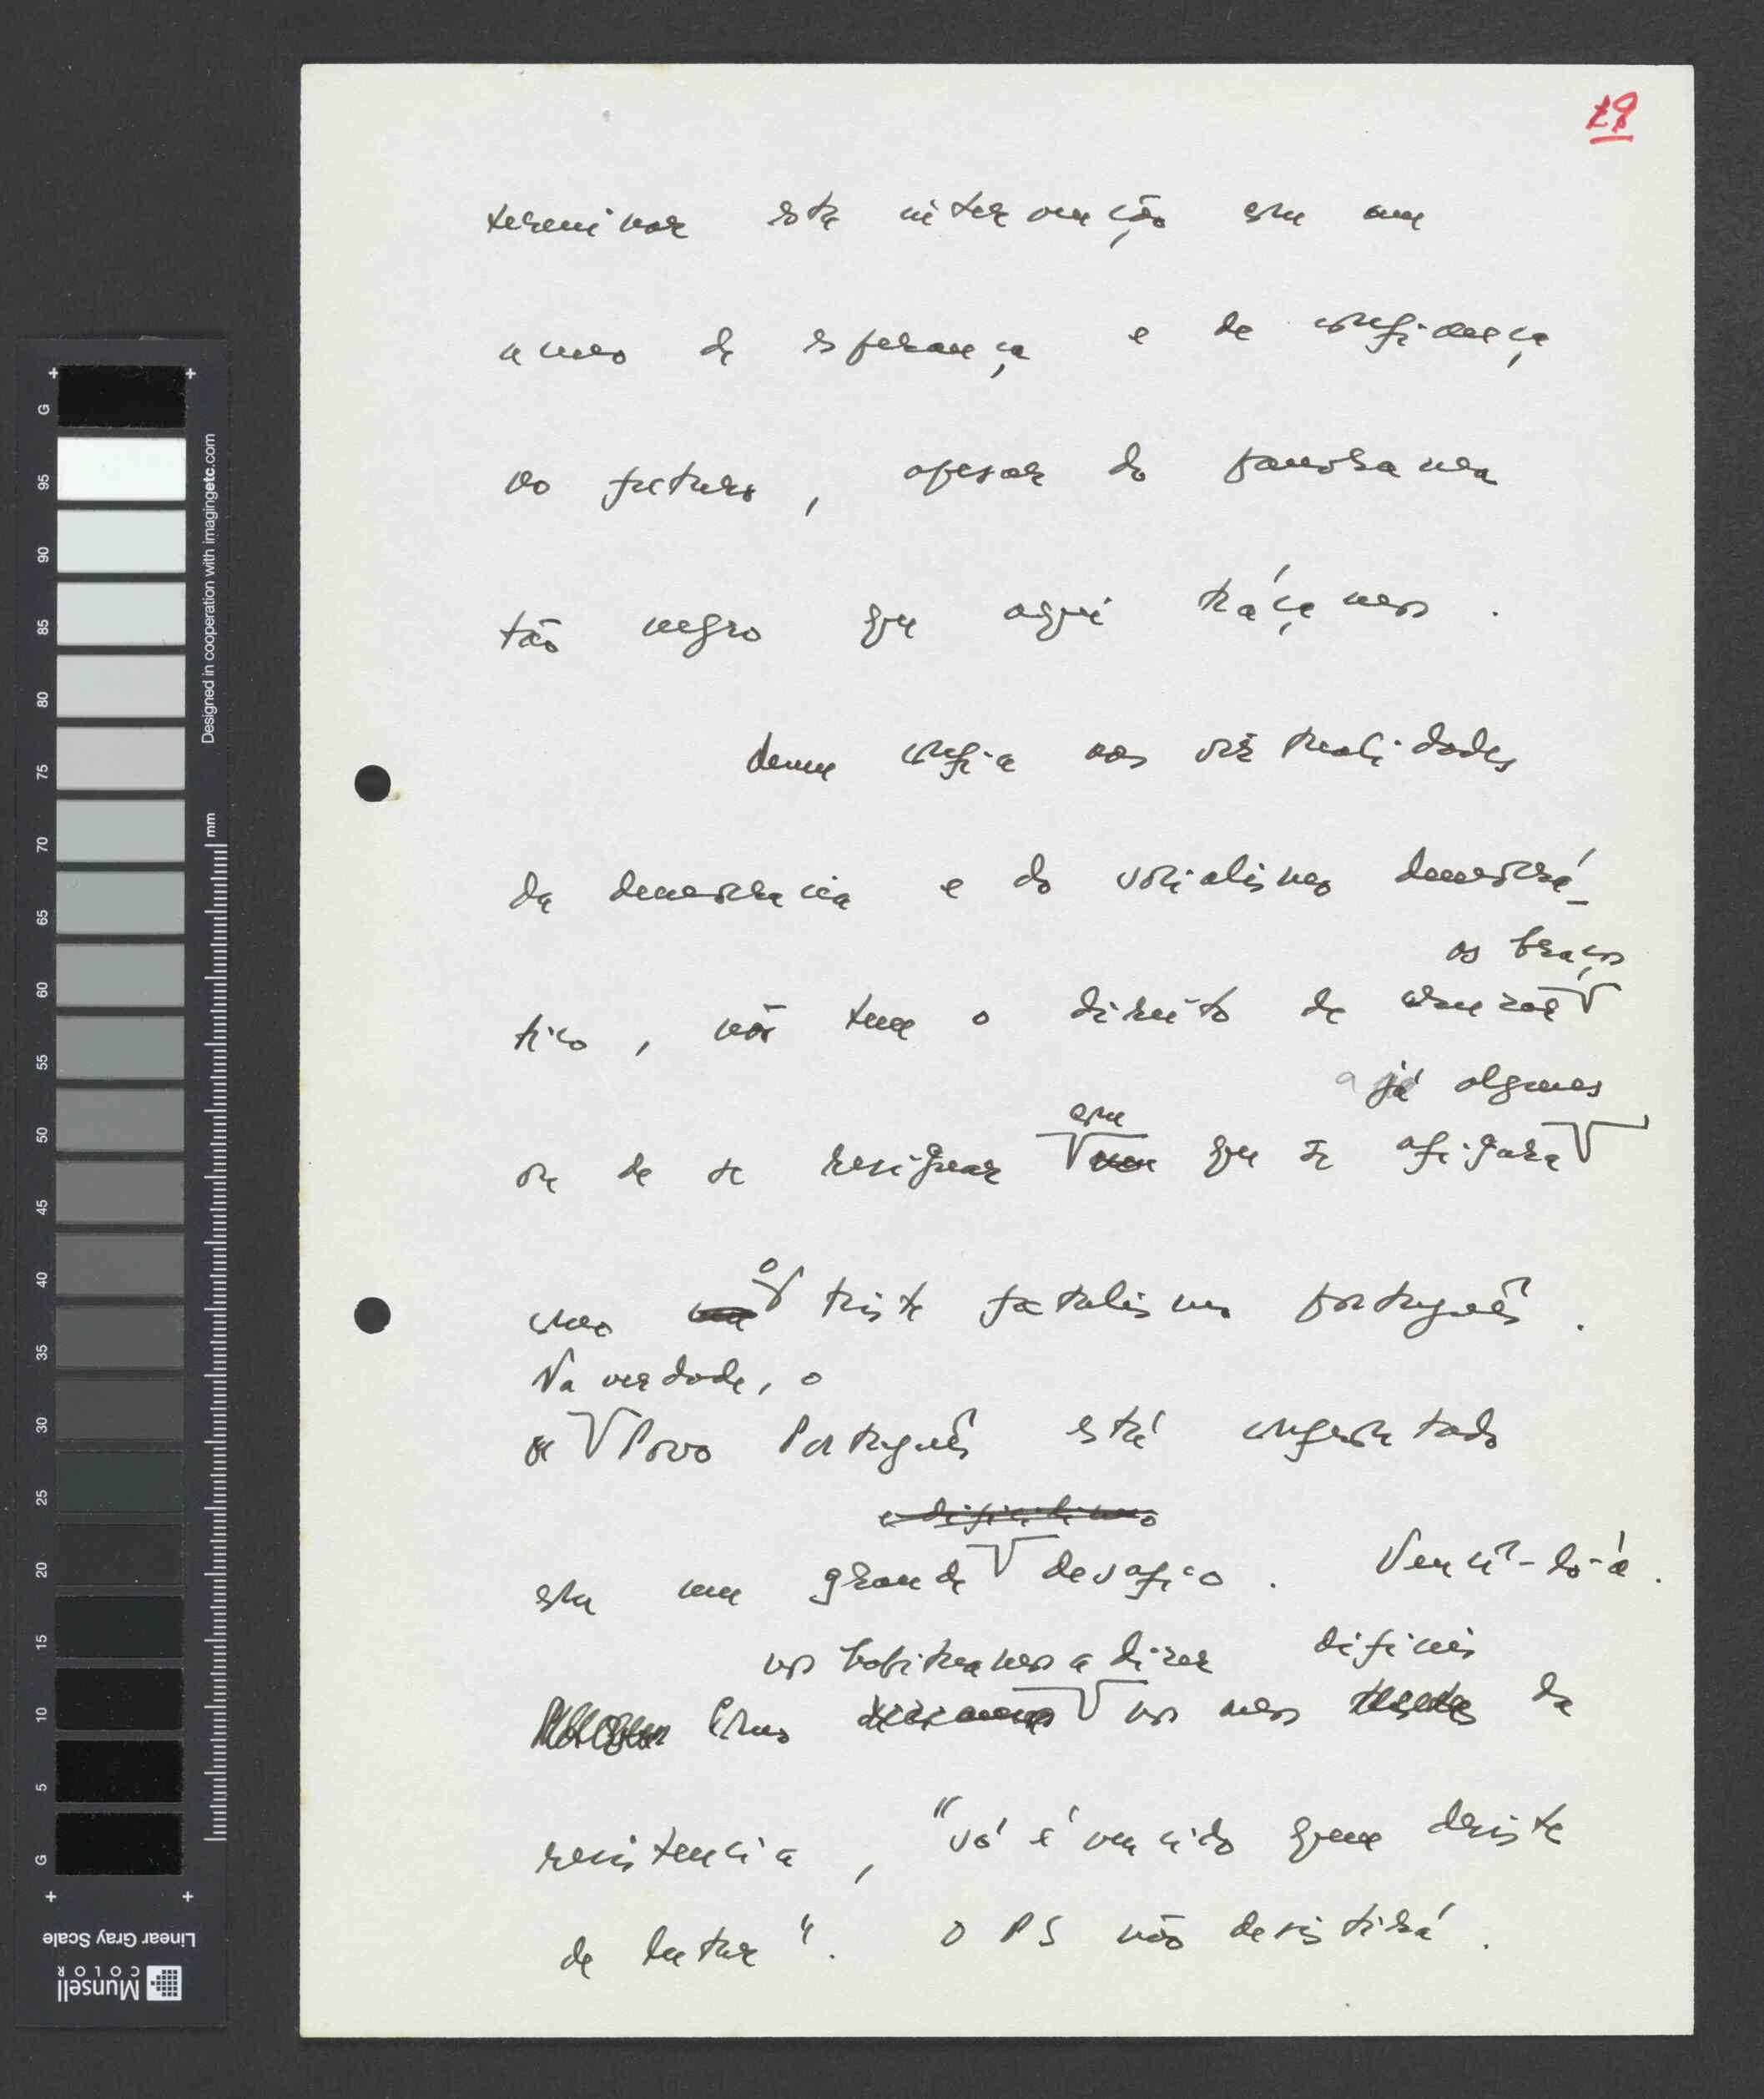 29
terminar esta intervenção com um
aceno de esperança e de confiança
no futuro, apesar do panorama
tão negro que aqui traçamos.
Quem confia nas virtualidades
da democracia e do socialismo democrá-
os braços
tico, não tem o direito de cruzar
a já alguns
ou de se resignar com que se afigura
como o triste fatalismo português.
Na verdade, o
Povo Português está confrontado
e dificílimo
com um grande desafio. Vencê-lo-á.
nos habituámos a dizer difíceis
Como nos anos da
resistencia, "só é vencido quem desiste
de lutar". O PS não desistirá.
G
95
90
85
80
75
70
65
60
55
50
45
40
35
30
25
20
15
10
5
G
mm
Designed in cooperation with imagingetc.com
Linear Gray Scale
Munsell
COLOR